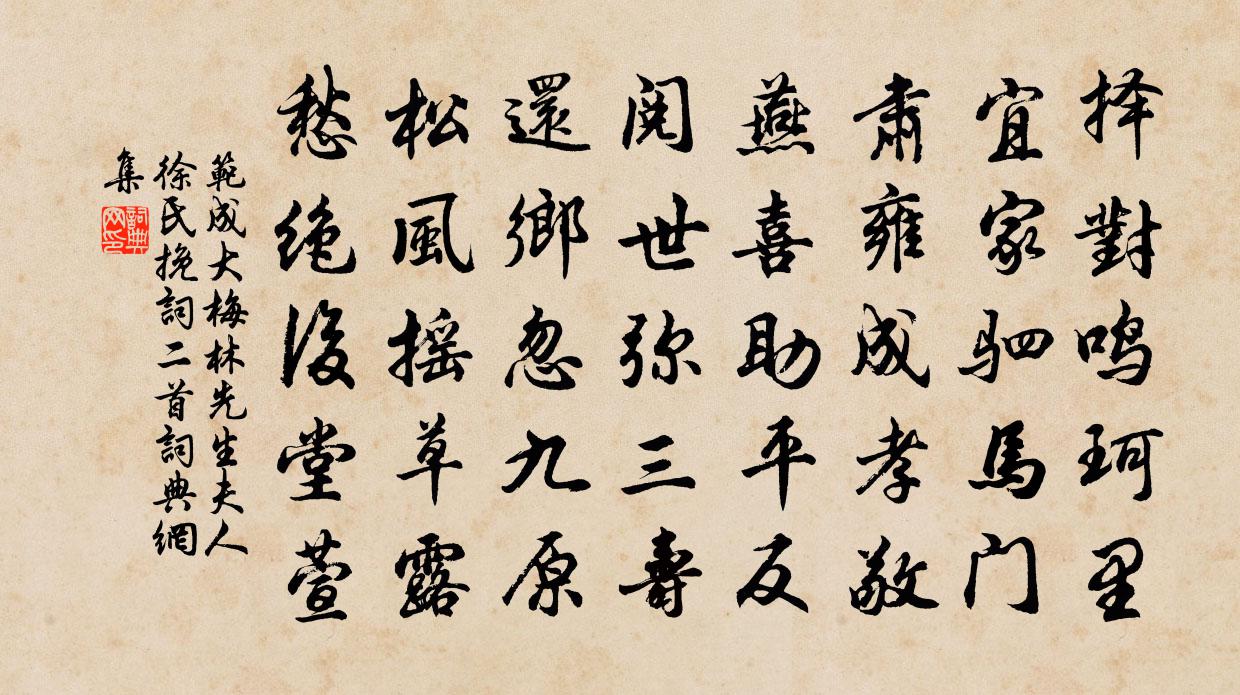 择對鸣珂里
宜家驷馬门
肃雍成孝敬
燕喜助平反
阅世弥三壽
還鄉忽九原
松風摇草露
愁绝後堂萱
範成大梅林先生夫人
徐氏挽詞二首詞典網
集
詞典
网印